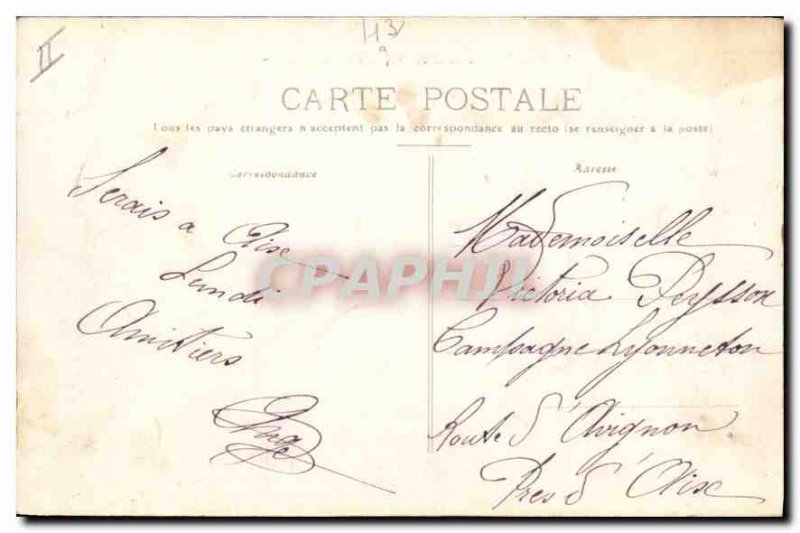 II
13
9
CARTE POSTALE
Tous les pays étrangers n'acceptent pas la correspondance au recto (se renseigner à la poste)
Correspondance
Adresse
Serais a Aixe
Lundi
Amitiers
Ange
Mademoiselle
Victoria Peysson
Campagne Lyonneton
Route d'Avignon
Pres d'Aixe
CPAPHIL